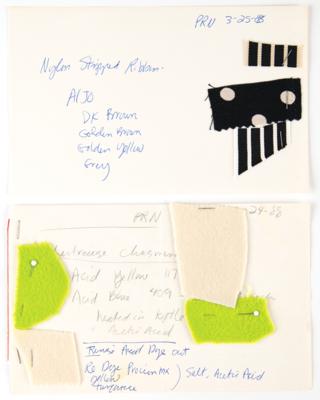 PRN 3-25-88
Nylon Stripped Ribbon.
Aljo
DK Brown
Golden Brown
Golden Yellow
Grey
PRN 24-88
Chartreuse
Acid Yellow 117
Acid Blue 409
heated in kettle
Acetic Acid
Rinse Acid Dye out
Re Dye Procion MX
yellow
turquoise
Salt, Acetic Acid